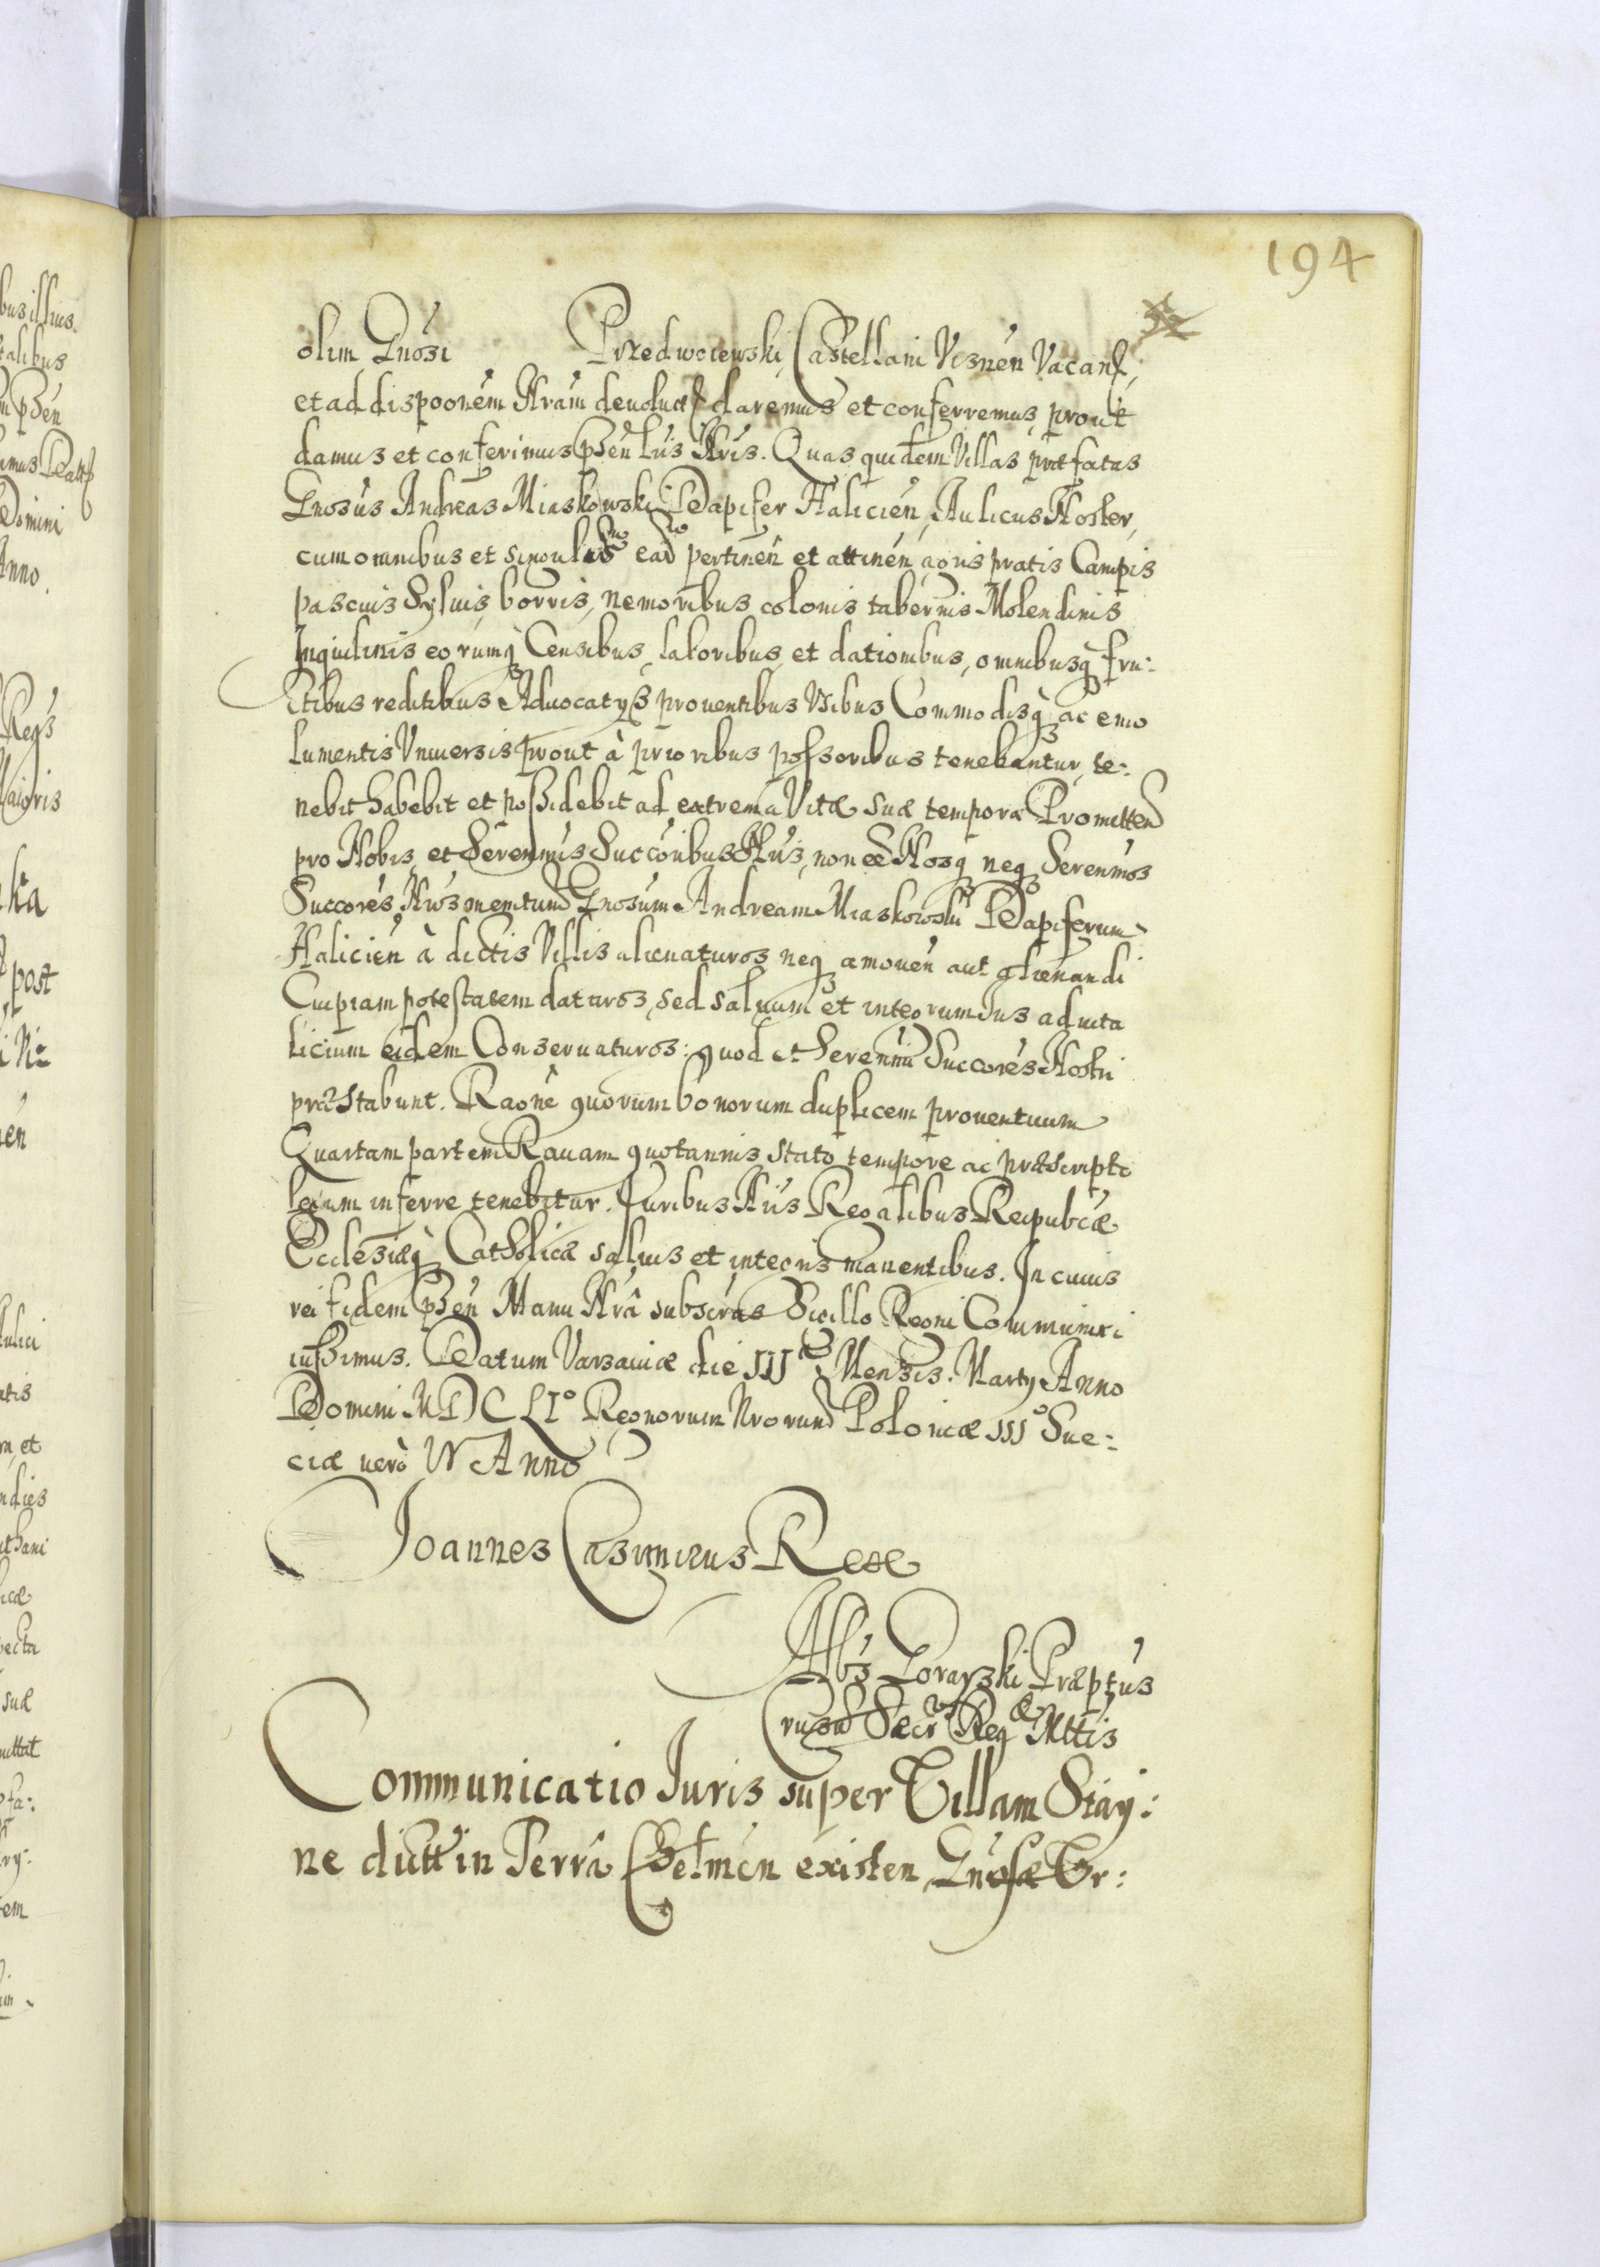 194
olim Gnosi Przedwoiewski Castellani Visnen Vacan
et ad dispoonem Nram deuolut daremus et conferremus, prout
damus et conferimus phsen Lris Nris. Quas quidem Villas præfatas
Gnosus Andreas Miaskowski Dapifer Halicien, Aulicus Noster,
cum omnibus et singulis ead pertinen et attinen agris pratis Campis
pascuis Syluis, borris, nemoribus colonis tabernis Molendinis
Inquilinis eorumq Censibus, laboribus, et dationibus, omnibusq fru:
ctibus reditibus Aduocatys prouentibus Vsibus Commodisq ac emo
lumentis Vniuersis prout à prioribus possoribus tenebantur, te:
nebit habebit et possidebit ad extrema Vitæ suæ tempora Promitten
pro Nobis, et Serenmis Succoribus Nris, non ee Nosq neq Serenmos
Succores Nros memtum Gnosum Andream Miaskowski Dapiferum
Halicien à dictis Villis alienaturos neq amouen aut alienandi
Cuipiam potestatem daturos, sed saluum et integrum Ius aduita
licium eidem Conseruaturos: quod et Serenmi Succores Nostri
præstabunt. Raone quorum bonorum duplicem prouentuum
Quartam partem Rauam quotannis stato tempore ac præscripto
legum inferre tenebitur. Iuribus Nris Regalibus Reipublcæ
Ecclesiæq Catholicæ saluis et integris manentibus. In cuius
rei fidem phsen Manu Nra subscras Sigillo Regni Communiri
iussimus. Datum Varsauiæ die III Mensis Marty Anno
Domini MDCLI° Regnorum Nrorum Poloniæ III° Sue:
ciæ verò IV Anno
Joannes Casimirus Rex
Albs Gorayski Præptus
Crusu Secr Reg Mttis
Communicatio Iuris super Villam Stay:
ne dictt in Terra Chelmen existen Gnosæ Vr: